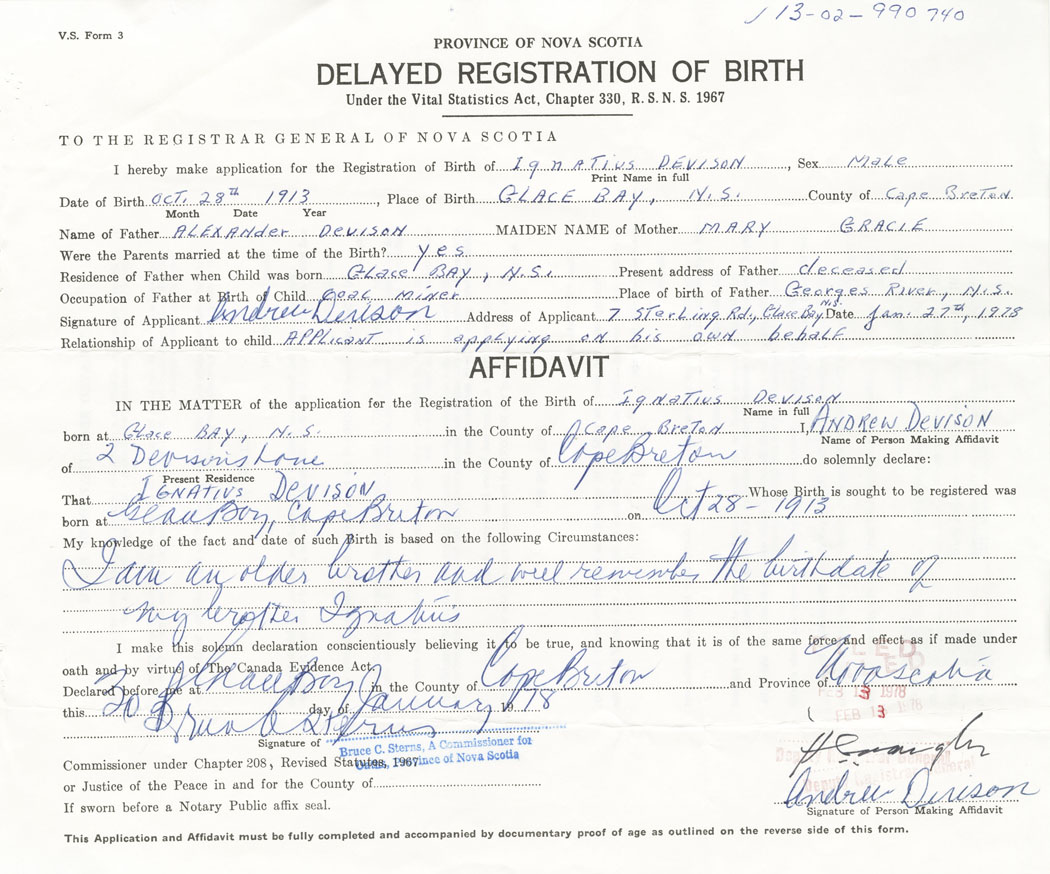 13-02-990740
V.S. Form 3
PROVINCE OF NOVA SCOTIA
DELAYED REGISTRATION OF BIRTH
Under the Vital Statistics Act, Chapter 330, R.S.N.S. 1967
TO THE REGISTRAR GENERAL OF NOVA SCOTIA
I hereby make application for the Registration of Birth of IgnATIUS DEVISON, Sex Male
Print Name in full
Date of Birth OCT. 28th 1913, Place of Birth GLACE BAY, N.S. County of Cape Breton
Month Date Year
Name of Father ALEXAnder Devison MAIDEN NAME of Mother MARY GRACIE
Were the Parents married at the time of the Birth? yes
Residence of Father when Child was born Glace BAY, N.S. Present address of Father deceased
Occupation of Father at Birth of Child coal miner Place of birth of Father Georges River, N.S.
Signature of Applicant Andrew Devison Address of Applicant 7 Starling Rd., Glace Bay N.S. Date Jan. 27th, 1978
Relationship of Applicant to child APPlicAnt is applying on his own behalf
AFFIDAVIT
IN THE MATTER of the application for the Registration of the Birth of IgnATius Devison
Name in full
born at Glace BAY, N.S. in the County of Cape Breton I, ANDREW DEVISON
Name of Person Making Affidavit
of 2 Devisons Lane in the County of Cape Breton do solemnly declare:
Present Residence
That IGNATIUS DEVISON Whose Birth is sought to be registered was
born at Glace Bay, Cape Breton on Oct 28 - 1913
My knowledge of the fact and date of such Birth is based on the following Circumstances:
I am an older brother and well remember the birthdate of
my brother Ignatius
I make this solemn declaration conscientiously believing it to be true, and knowing that it is of the same force and effect as if made under
oath and by virtue of The Canada Evidence Act.
Declared before me at Glace Bay in the County of Cape Breton and Province of Nova Scotia
this 30 day of January 1978
FEB 13 1978
FEB 13 1978
Bruce C Sterns
Signature of
Bruce C. Sterns, A Commissioner for
Oaths, Province of Nova Scotia
Commissioner under Chapter 208, Revised Statutes, 1967
Deputy Registrar General
or Justice of the Peace in and for the County of
Andrew Devison
If sworn before a Notary Public affix seal.
Signature of Person Making Affidavit
This Application and Affidavit must be fully completed and accompanied by documentary proof of age as outlined on the reverse side of this form.